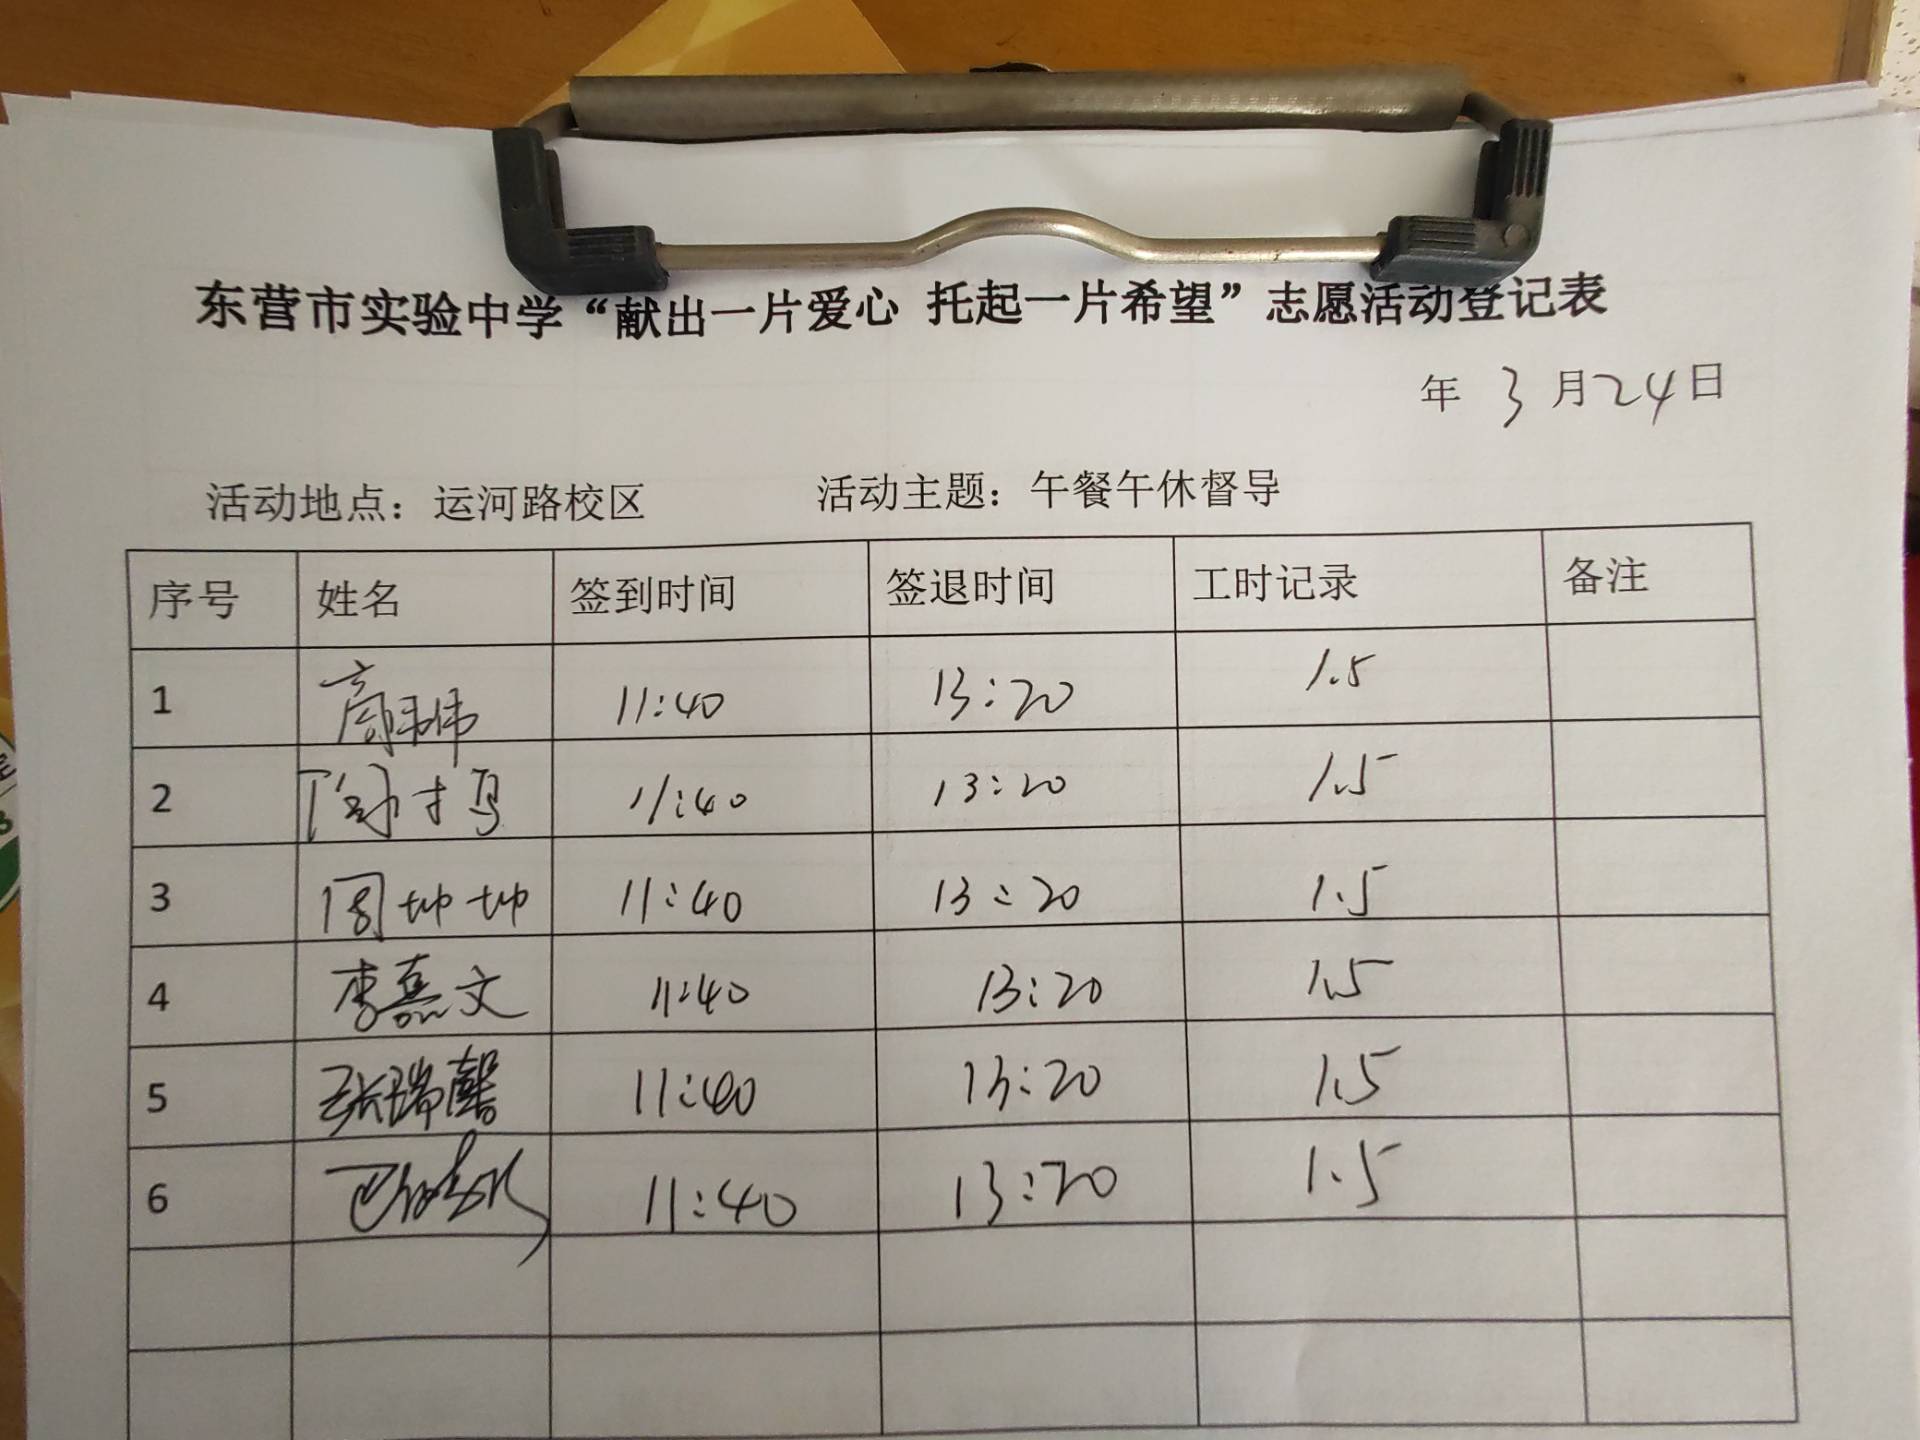 东营市实验中学“献出一片爱心 托起一片希望”志愿活动登记表
年 3 月 24 日
活动地点：运河路校区 活动主题：午餐午休督导
序号 姓名 签到时间 签退时间 工时记录 备注
1 高玮 11:40 13:20 1.5
2 11:40 13:20 1.5
3 周坤坤 11:40 13:20 1.5
4 李嘉文 11:40 13:20 1.5
5 张瑞馨 11:40 13:20 1.5
6 11:40 13:20 1.5